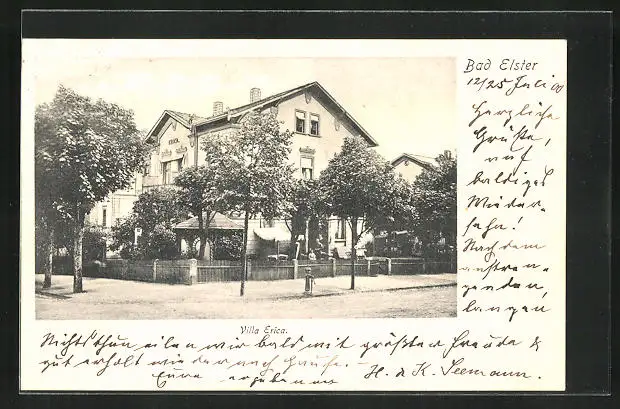 Bad Elster
12/25 Juli 00
Herzliche
Grüße,
auf
baldiges
Wieder-
sehn!
Nach dem
anstren-
genden,
langen
ERICA
Villa Erica.
Nichtsthun eilen wir bald mit größter Freude &
gut erholt wieder nach Hause.
Eure ergebenen H. & K. Seemann.